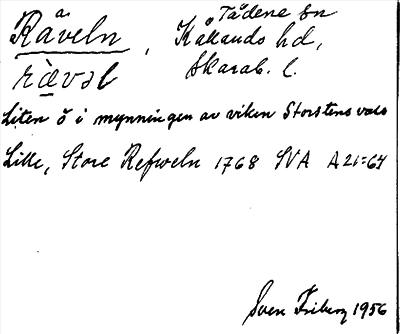 Råveln, Tådene sn
Kållands hd,
rävəl Skarab. l.
Liten ö i mynningen av viken Storstens vass
Lille, Store Refweln 1768 SVA A21:64
Sven Friberg 1956